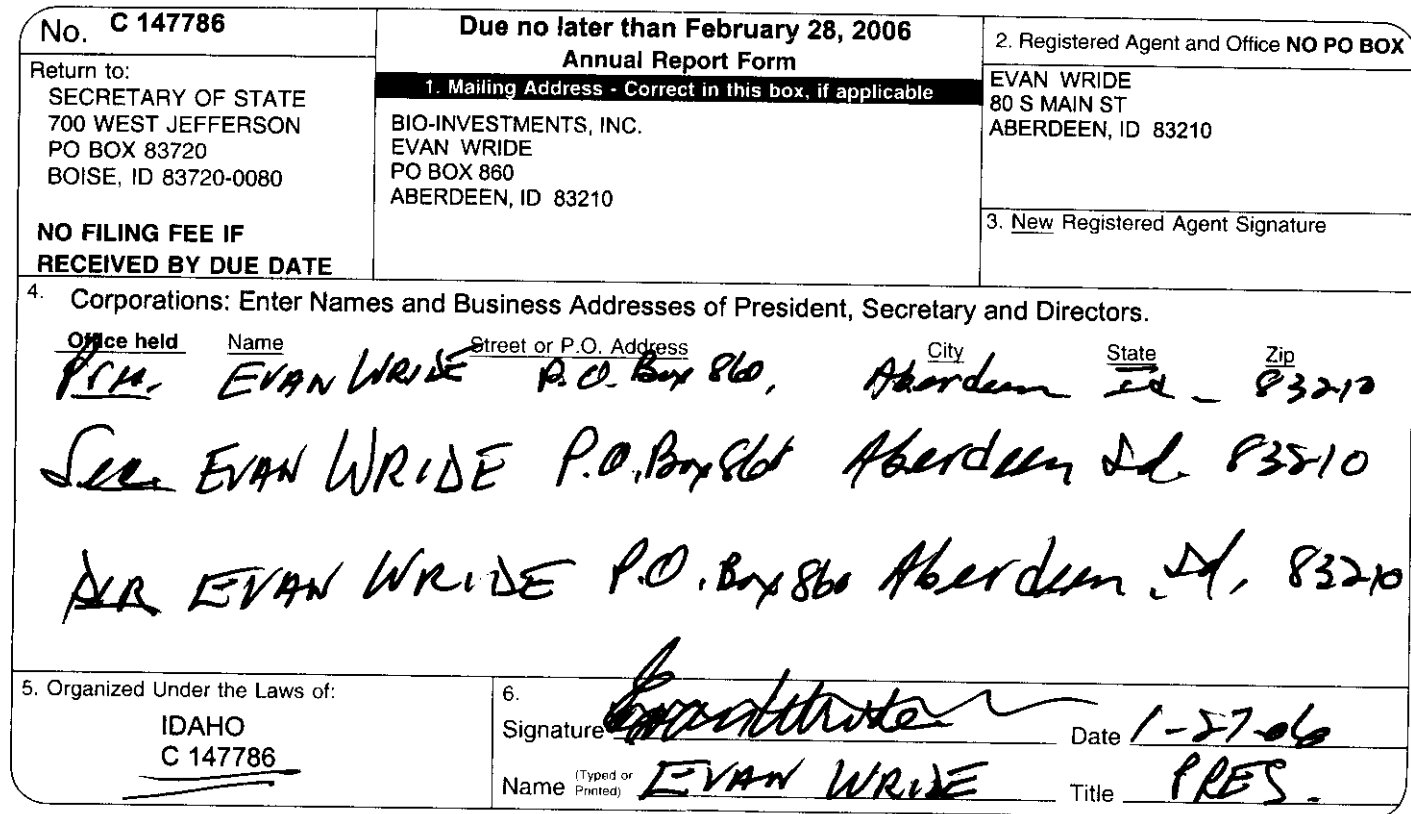 No. C 147786
Return to:
SECRETARY OF STATE
700 WEST JEFFERSON
PO BOX 83720
BOISE, ID 83720-0080
NO FILING FEE IF
RECEIVED BY DUE DATE
Due no later than February 28, 2006
Annual Report Form
1. Mailing Address - Correct in this box, if applicable
BIO-INVESTMENTS, INC.
EVAN WRIDE
PO BOX 860
ABERDEEN, ID 83210
2. Registered Agent and Office NO PO BOX
EVAN WRIDE
80 S MAIN ST
ABERDEEN, ID 83210
3. New Registered Agent Signature
4. Corporations: Enter Names and Business Addresses of President, Secretary and Directors.
Office held Name Street or P.O. Address City State Zip
Pres. EVAN WRIDE P.O. Box 860, Aberdeen Id. 83210
Sec. EVAN WRIDE P.O. Box 860 Aberdeen Id. 83210
DIR EVAN WRIDE P.O. Box 860 Aberdeen Id, 83210
5. Organized Under the Laws of:
IDAHO
C 147786
6.
Signature Evan Wride Date 1-27-06
Name (Typed or Printed) EVAN WRIDE Title PRES.